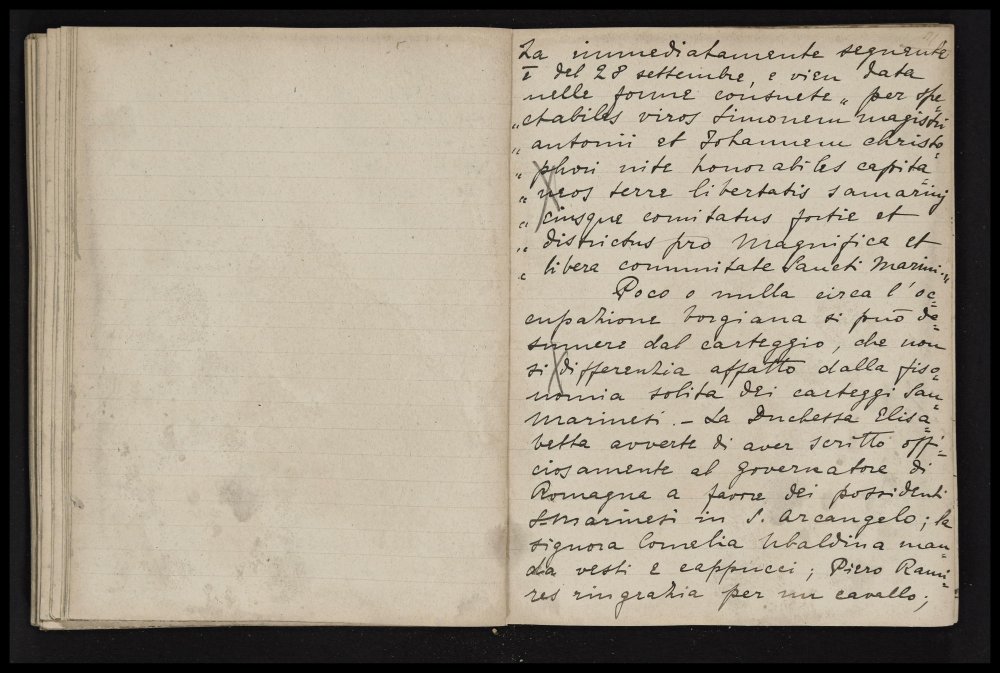 La immediatamente seguente
È del 28 settembre, e vien data
nelle forme consuete „ per spe=
„ ctabiles viros Simonem magistri
„ antonii et Johannem christo=
„ phori nite honorabiles capita=
„ neos terre libertatis samarinj
„ eiusque comitatus fortie et
„ districtus pro Magnifica et
„ libera communitate Sancti Marini. „
Poco o nulla circa l' oc=
cupazione borgiana si può de=
sumere dal carteggio, che non
si differenzia affatto dalla fiso=
nomia solita dei carteggi San=
marinesi. – La Duchessa Elisa=
betta avverte di aver scritto offi=
ciosamente al governatore di
Romagna a favore dei possidenti
S.marinesi in S. Arcangelo; la
signora Cornelia Ubaldina man=
da vesti e cappucci; Piero Rami=
res ringrazia per un cavallo;